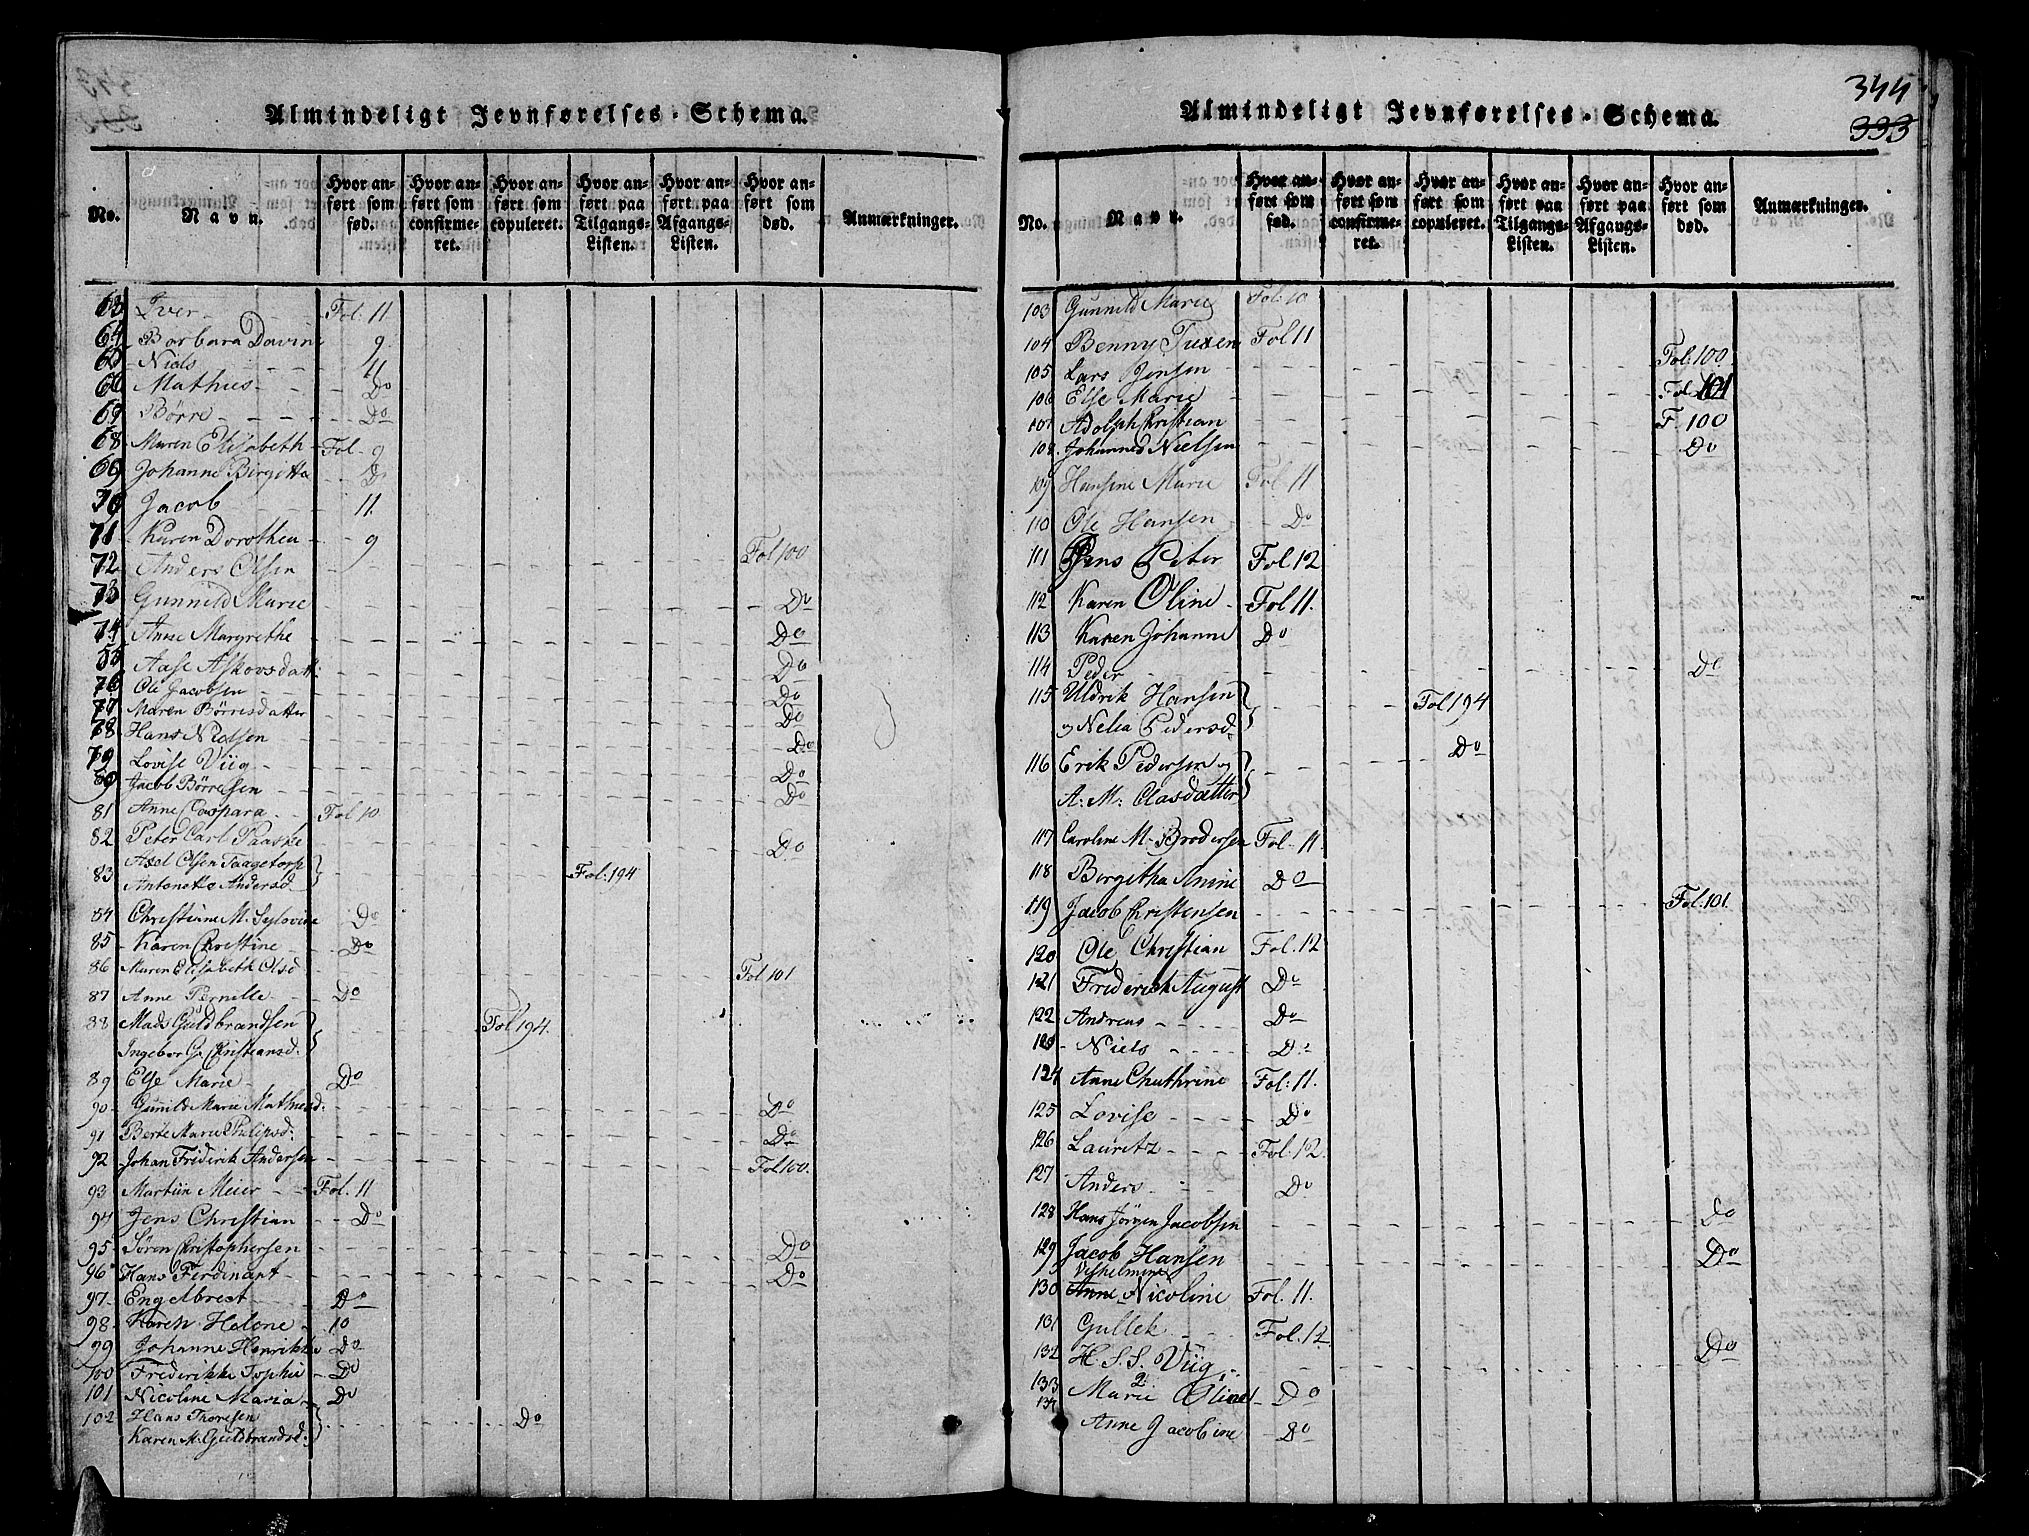 Almindeligt Jevnførelses-Schema.
No. Navn. Hvor anført som fød. Hvor anført som confirmeret. Hvor anført som copuleret. Hvor anført paa Tilgangs-Listen. Hvor anført paa Afgangs-Listen. Hvor anført som død. Anmærkninger.
63 Iver Fol. 11
64 Barbara Davine 9
65 Niels 11
66 Mathus Do
67 Börre Do
68 Maren Elisabeth Fol. 9
69 Johanne Birgitta Do
70 Jacob 11
71 Karen Dorothea 9
72 Anders Olsen Fol 100
73 Gunnild Marie Do
74 Anne Margrethe Do
75 Aase Askovsdatt: Do
76 Ole Jacobsen Do
77 Maren Börresdatter Do
78 Hans Nielsen Do
79 Lovise Viig Do
80 Jacob Börresen Do
81 Anne Caspara Fol 10
82 Peter Carl Paaske Do
83 Axel Olsen Taagetorp
Antonette Andersd Fol: 194
84 Christiane M. Sylovine Do
85 Karen Christine Do
86 Maren Elisabeth Olsd Fol 101
87 Anne Pernille Do
88 Mads Guldbrandsen
Ingebor G. Christiansd. Fol 194.
89 Else Marie Do
90 Gunild Marie Mathiesd: Do
91 Berte Marie Philipsd: Do
92 Johan Friderik Andersen Fol 100.
93 Martiin Meier Fol. 11
94 Jens Christian Do
95 Sören Christophersen Do
96 Hans Ferdinant Do
97 Engelbrect Do
98 Karen Helene 10
99 Johanne Henrikke Do
100 Frederikke Sophie Do
101 Nicoline Maria Do
102 Hans Thoresen
Karen M. Guldbrandsd: Do
344
333
Almindeligt Jevnførelses-Schema.
No. Navn. Hvor anført som fød. Hvor anført som confirmeret. Hvor anført som copuleret. Hvor anført paa Tilgangs-Listen. Hvor anført paa Afgangs-Listen. Hvor anført som død. Anmærkninger.
103 Gunnild Marie Fol: 10
104 Benny Tuxen Fol 11
105 Lars Jensen Fol: 100
106 Else Marie Fol 101
107 Adolph Christian F. 100
108 Johanned Nielsen Do
109 Hansine Marie Fol 11
110 Ole Hansen Do
111 Jens Peter Fol 12
112 Karen Oline Fol 11.
113 Karen Johanne Do
114 Peder Do
115 Uldrik Hansen
og Nelia Pedersd. Fol 194
116 Erik Pedersen og
A: M: Clasdatter Do
117 Caroline M. Brodersen Fol. 11
118 Birgitha Amine Do
119 Jacob Christensen Fol. 101.
120 Ole Christian Fol. 12
121 Friderick August Do
122 Andreas Do
123 Niels Do
124 Anne Chathrine Fol: 11.
125 Lovise Do
126 Lauritz Fol: 12.
127 Anders Do
128 Hans Jörgen Jacobsen Do
129 Jacob Hansen Do
Vilhelmine
130 Anne Nicoline Fol. 11.
131 Gullek Fol: 12
132 H. S. S. Viig Do
133 Marie Oline Do
134 Anne Jacobine Do